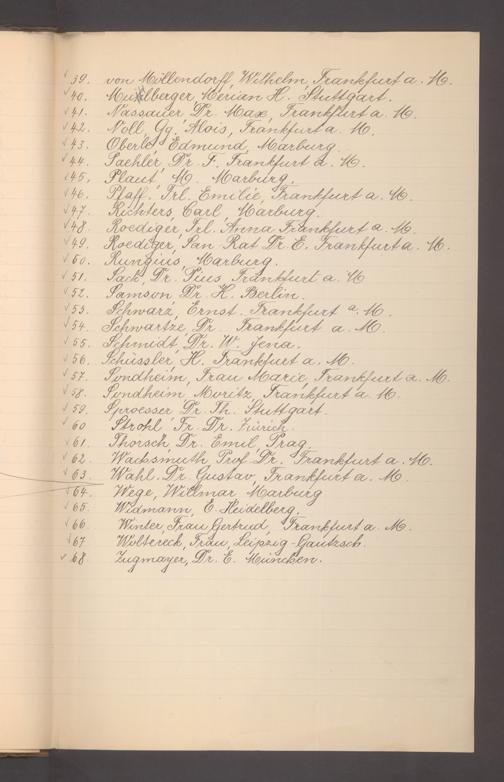 39. von Möllendorff, Wilhelm, Frankfurt a. M.
40. Mühlberger, Merian H. Stuttgart.
41. Nassauer Dr. Max, Frankfurt a. M.
42. Noll, Gg. Alois, Frankfurt a. M.
43. Oberle, Edmund, Marburg.
44. Paehler, Dr. F. Frankfurt a. M.
45. Plaut, M. Marburg.
46. Pfaff, Frl. Emilie, Frankfurt a. M.
47. Richters, Carl, Marburg.
48. Roediger, Frl. Anna Frankfurt a. M.
49. Roediger, San Rat Dr. E. Frankfurt a. M.
50. Rungius, Marburg.
51. Sack, Dr. Pius Frankfurt a. M
52. Samson, Dr. H. Berlin.
53. Schwarz, Ernst. Frankfurt a. M.
54. Schwartze, Dr. Frankfurt a. M.
55. Schmidt, Dr. W. Jena.
56. Schüssler, H. Frankfurt a. M.
57. Sondheim, Frau Marie, Frankfurt a. M.
58. Sondheim Moritz, Frankfurt a. M.
59. Sproesser Dr. Th. Stuttgart.
60 Strohl, Fr. Dr. Zürich.
61. Thorsch Dr. Emil, Prag.
62. Wachsmuth Prof. Dr. Frankfurt a. M.
63. Wahl. Dr. Gustav, Frankfurt a. M.
64. Wege, Willmar Marburg
65. Widmann, E. Heidelberg.
66. Winter, Frau Gertrud, Frankfurt a. M.
67 Woltereck, Frau, Leipzig-Gautzsch.
68 Zugmayer, Dr. E. München.